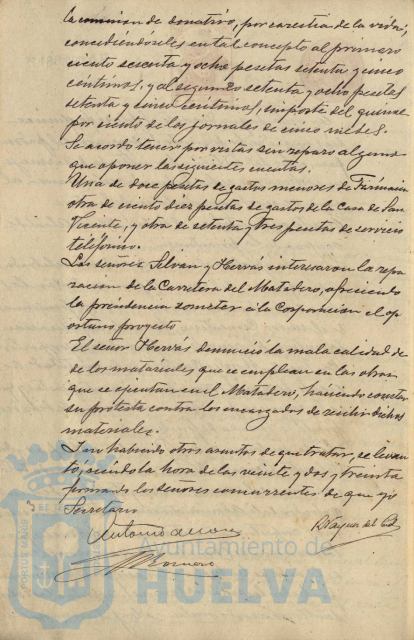 la comision de donativo, por carestia de la vida,
concediendoseles en tal concepto al primero
ciento sesenta y ocho pesetas setenta y cinco
centimos, y al segundo setenta y ocho pesetas
setenta y cinco centimos, importe del quince
por ciento de los jornales de cinco meses.
Se acordó tener por vistas sin reparo alguno
que oponer las siguientes cuentas.
Una de doce pesetas de gastos menores de Farmacia
otra de ciento diez pesetas de gastos de la Casa de San
Vicente, y otra de setenta y tres pesetas de servicio
telefónico.
Los señores Silvan y Hervás interesaron la repa-
racion de la Carretera del Matadero, ofreciendo
la presidencia someter á la Corporacion el op-
ortuno proyecto
El señor Hervás denunció la mala calidad de
de los materiales que se emplean en las obras
que se ejecutan en el Matadero, haciendo constar
su protesta contra los encargados de recibir dichos
materiales.
I no habiendo otros asuntos de que tratar, se levan-
tó, siendo la hora de las veinte y dos y treinta
firmando los señores concurrentes de que yo
Secretario
Antonio de
Romero
Ayuntamiento de
HUELVA